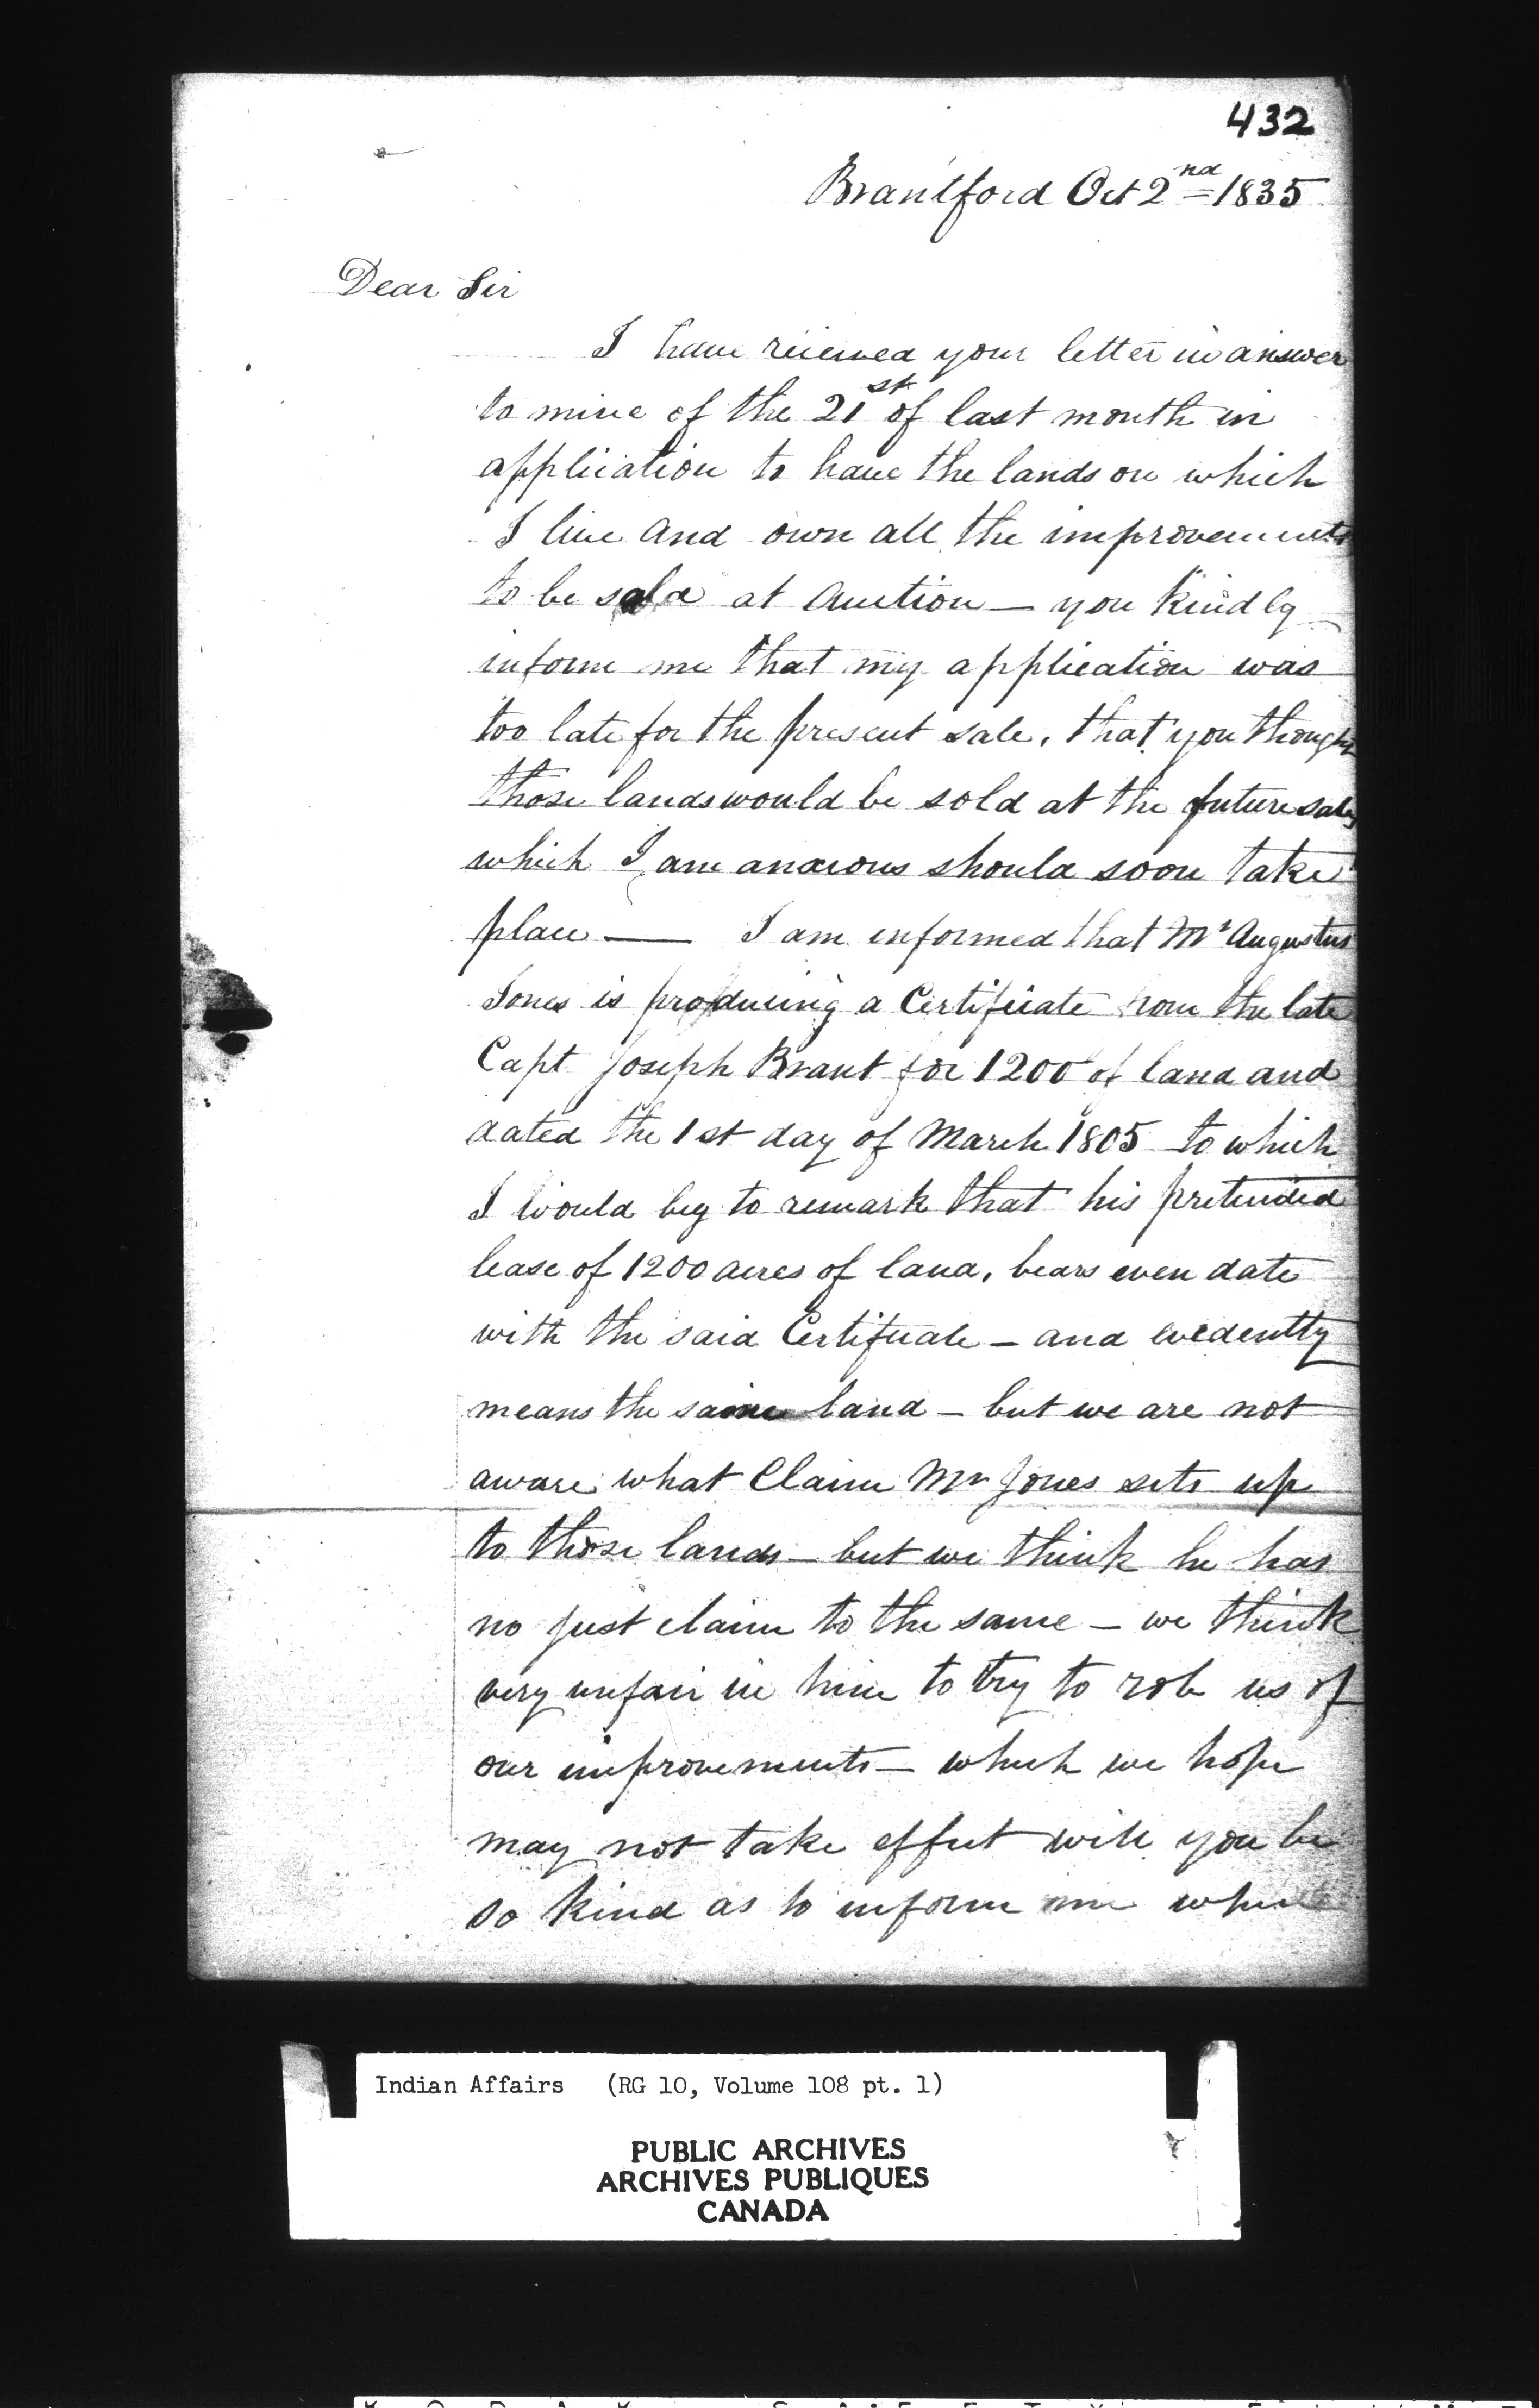 432
Brantford Oct 2nd = 1835
Dear Sir
I have received your letter in answer
to mine of the 21st of last month in
application to have the lands on which
I live and own all the improvements
to be sold at Auction — you kindly
inform me that my application was
too late for the present sale, that you thought
those lands would be sold at the future sales
which I am anxious should soon take
place — I am informed that Mr Augustus
Jones is producing a Certificate from the late
Capt Joseph Brant for 1200 of land and
dated the 1st day of March 1805 to which
I would beg to remark that his pretended
lease of 1200 acres of land, bears even date
with the said Certificate — and evedently
means the same land — but we are not
aware what Claim Mr Jones sets up
to those lands — but we think he has
no just claim to the same — we think
very unfair in him to try to rob us of
our improvements — which we hope
may not take effect will you be
so kind as to inform me
Indian Affairs (RG 10, Volume 108 pt. 1)
PUBLIC ARCHIVES
ARCHIVES PUBLIQUES
CANADA